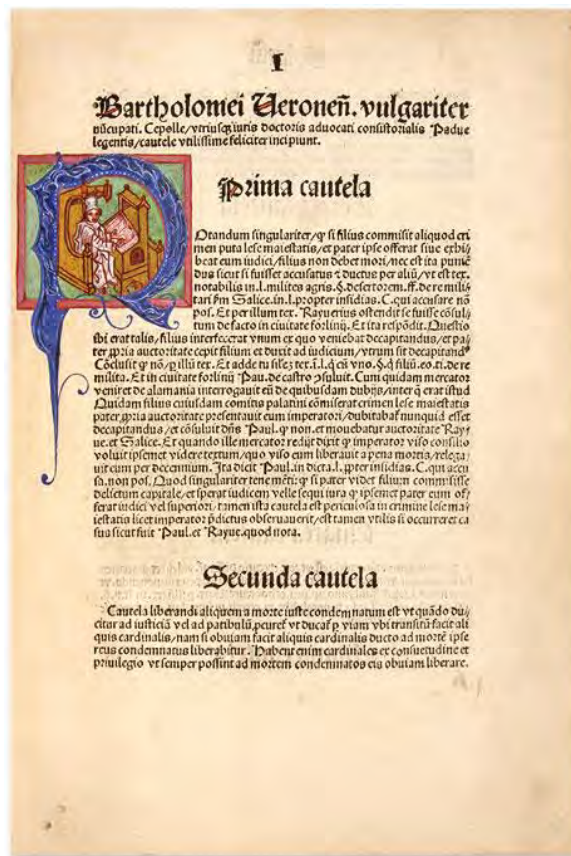 I
Bartholomei Ueroneñ. vulgariter
nũcupati. Cepolle/vtriusq̃ iuris doctoris aduocati consistorialis Padue
legentis/cautele vtilissime feliciter incipiunt.
Prima cautela
Otandum singulariter/ꝙ si filius commisit aliquod cri
men puta lese maiestatis/et pater ipse offerat siue exhi
beat eum iudici/filius non debet mori/nec est ita puniẽ
dus sicut si fuisset accusatus ⁊ ductus per aliũ/vt est tex.
notabilis in.l.milites agris.§.desertorem.ff.de re mili
tari ꝑm Salice.in.l.propter insidias.C.qui accusare nõ
pos. Et per illum tex. Rayuerius ostendit se fuisse cõsul
tum de facto in ciuitate forliuij. Et ita respõdit. Questio
ibi erat talis/filius interfecerat vnum ex quo veniebat decapitandus/et pa
ter ꝓpria auctoritate cepit filium et duxit ad iudicium/vtrum sit decapitandꝰ
Cõclusit ꝙ nõ/ꝑ illũ tex. Et adde tu silẽ tex.ĩ.l.q̃ cũ vno.§.q̃ filiũ.eo.ti.de re
milita. Et in ciuitate forliuij Pau.de castro ↄsuluit. Cum quidam mercator
veniret de alamania interrogauit eũ de quibusdam dubijs/inter q̃ erat istud
Quidam filius cuiusdam comitis palatini cõmiserat crimen lese maiestatis
pater ꝓpria auctoritate presentauit eum imperatori/dubitabaf nunquid esset
decapitandus/et cõsuluit dñs Paul.ꝙ non.et mouebatur auctoritate Ray
ue.et Salice. Et quando ille mercator redijt dixit ꝙ imperator viso consilio
voluit ipsemet videre textum/quo viso eum liberauit a pena mortis/relega
uit eum per decennium. Ita dicit Paul.in dicta.l.ꝓpter insidias.C.qui accu
sa.non pos. Quod singulariter tene mẽti: ꝙ si pater videt filium commisisse
delictum capitale/et sperat iudicem velle sequi iura ꝙ ipsemet pater eum of/
ferat iudici vel superiori/tamen ista cautela est periculosa in crimine lese ma/
iestatis licet imperator ꝓdictus obseruauerit/est tamen vtilis si occurreret ca
sus sicut fuit Paul.et Rayue.quod nota.
Secunda cautela
Cautela liberandi aliquem a morte iuste condemnatum est vt quãdo du/
citur ad iusticiã vel ad patibulũ/ꝓcuret̃ vt ducat̃ ꝑ viam vbi transitũ facit ali
quis cardinalis/nam si obuiam facit aliquis cardinalis ducto ad mortẽ ipse
reus condemnatus liberabitur. Habent enim cardinales ex consuetudine et
priuilegio vt semper possint ad mortem condemnatos eis obuiam liberare.